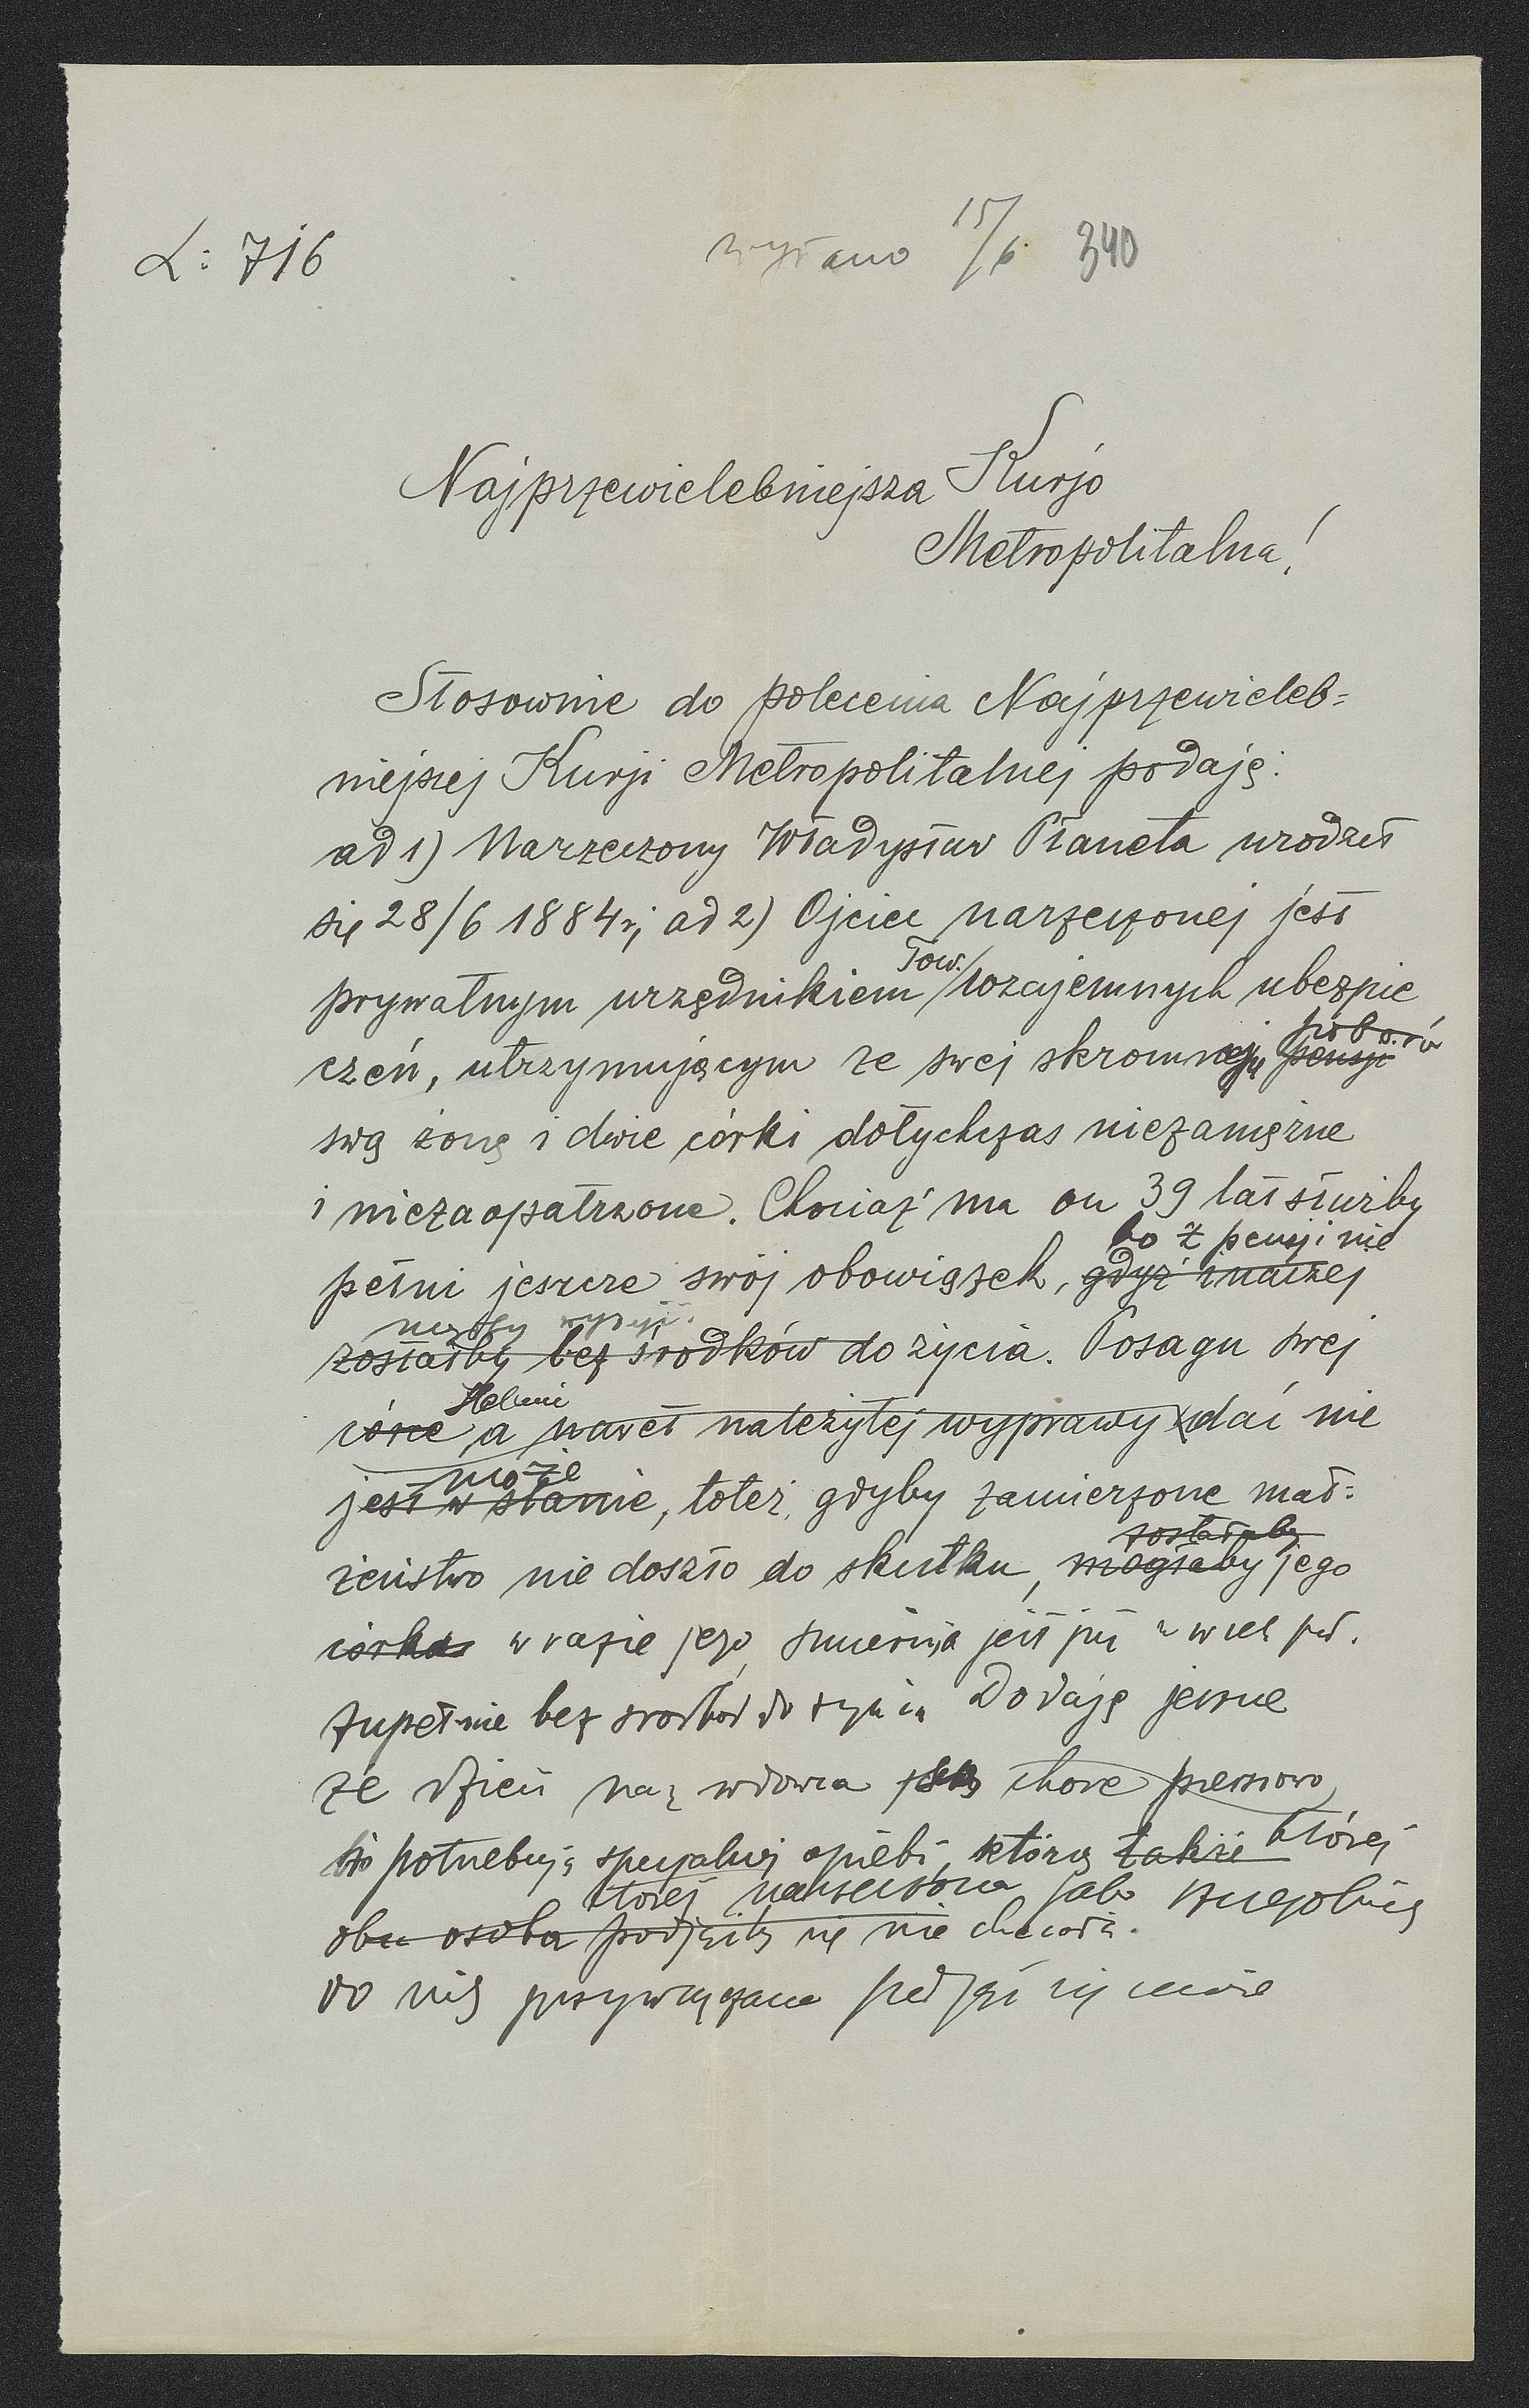 L: 716
wysłano 15/6 340
Najprzewielebniejsza Kurjo
Metropolitalna!
Stosownie do polecenia Najprzewieleb=
niejszej Kurji Metropolitalnej podaję:
ad 1) Narzeczony Władysław Płaneta urodził
się 28/6 1884 r; ad 2) Ojciec narzeczonej jest
Tow.
prywatnym urzędnikiem wzajemnych ubezpie
poborów
czeń, utrzymującym ze swej skromnej pensji
swą żonę i dwie córki dotychczas niezamężne
i niezaopatrzone. Chociaż ma on 39 lat służby
bo z pensji nie
pełni jeszcze swój obowiązek, gdyż inaczej
mógłby wyżyć.
zostałby bez środków do życia. Posagu swej
Helenie
córce a nawet należytej wyprawy dać nie
może
jest w stanie, toteż gdyby zamierzone mał=
zostałaby
żeństwo nie doszło do skutku, mogłaby jego
córka w razie jego śmierci jest już
zupełnie bez środków do życia Dodaję jeszcze
że dzieci wdowca są chore piersiowo
potrzebują specjalnej opieki, którą także której
której narzeczona jako szczególnie
obca osoba podjęłaby się nie chciała.
do nich przywiązana podjąć się może